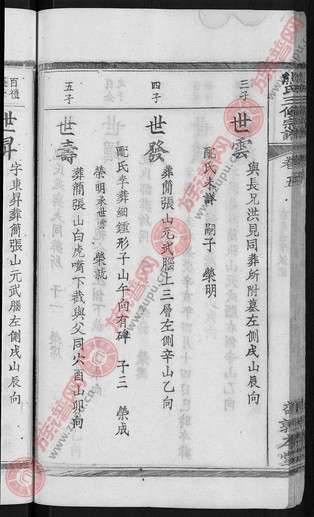 氏三修宗譜
卷五
三子
世雲
與長兄洪見同葬所附墓左側戌山辰向
配氏未詳 嗣子 榮明
四子
世發
葬簡張山元武腦上三層左側辛山乙向
配氏李葬細鍾形子山午向有碑 子三 榮成
榮明承世雲 榮就
五子
世壽
葬簡張山白虎嘴下截與父同火酉山卯向
世昇
字東昇葬簡張山元武腦左側戌山辰向